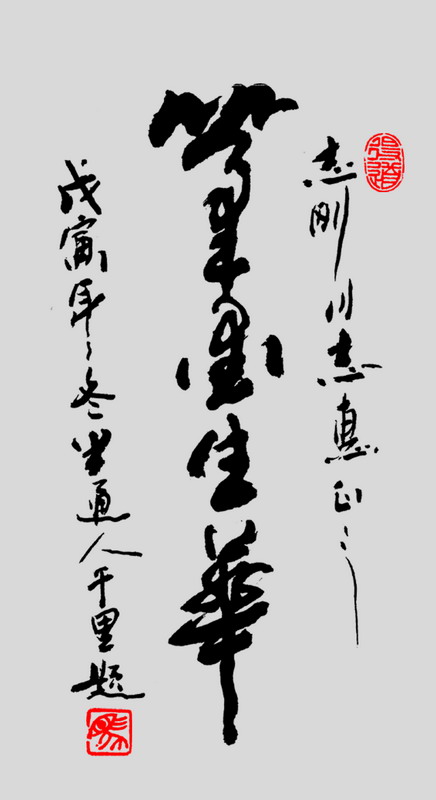 志刚同志惠正之
筆墨生華
戊寅年之冬半通人千里题